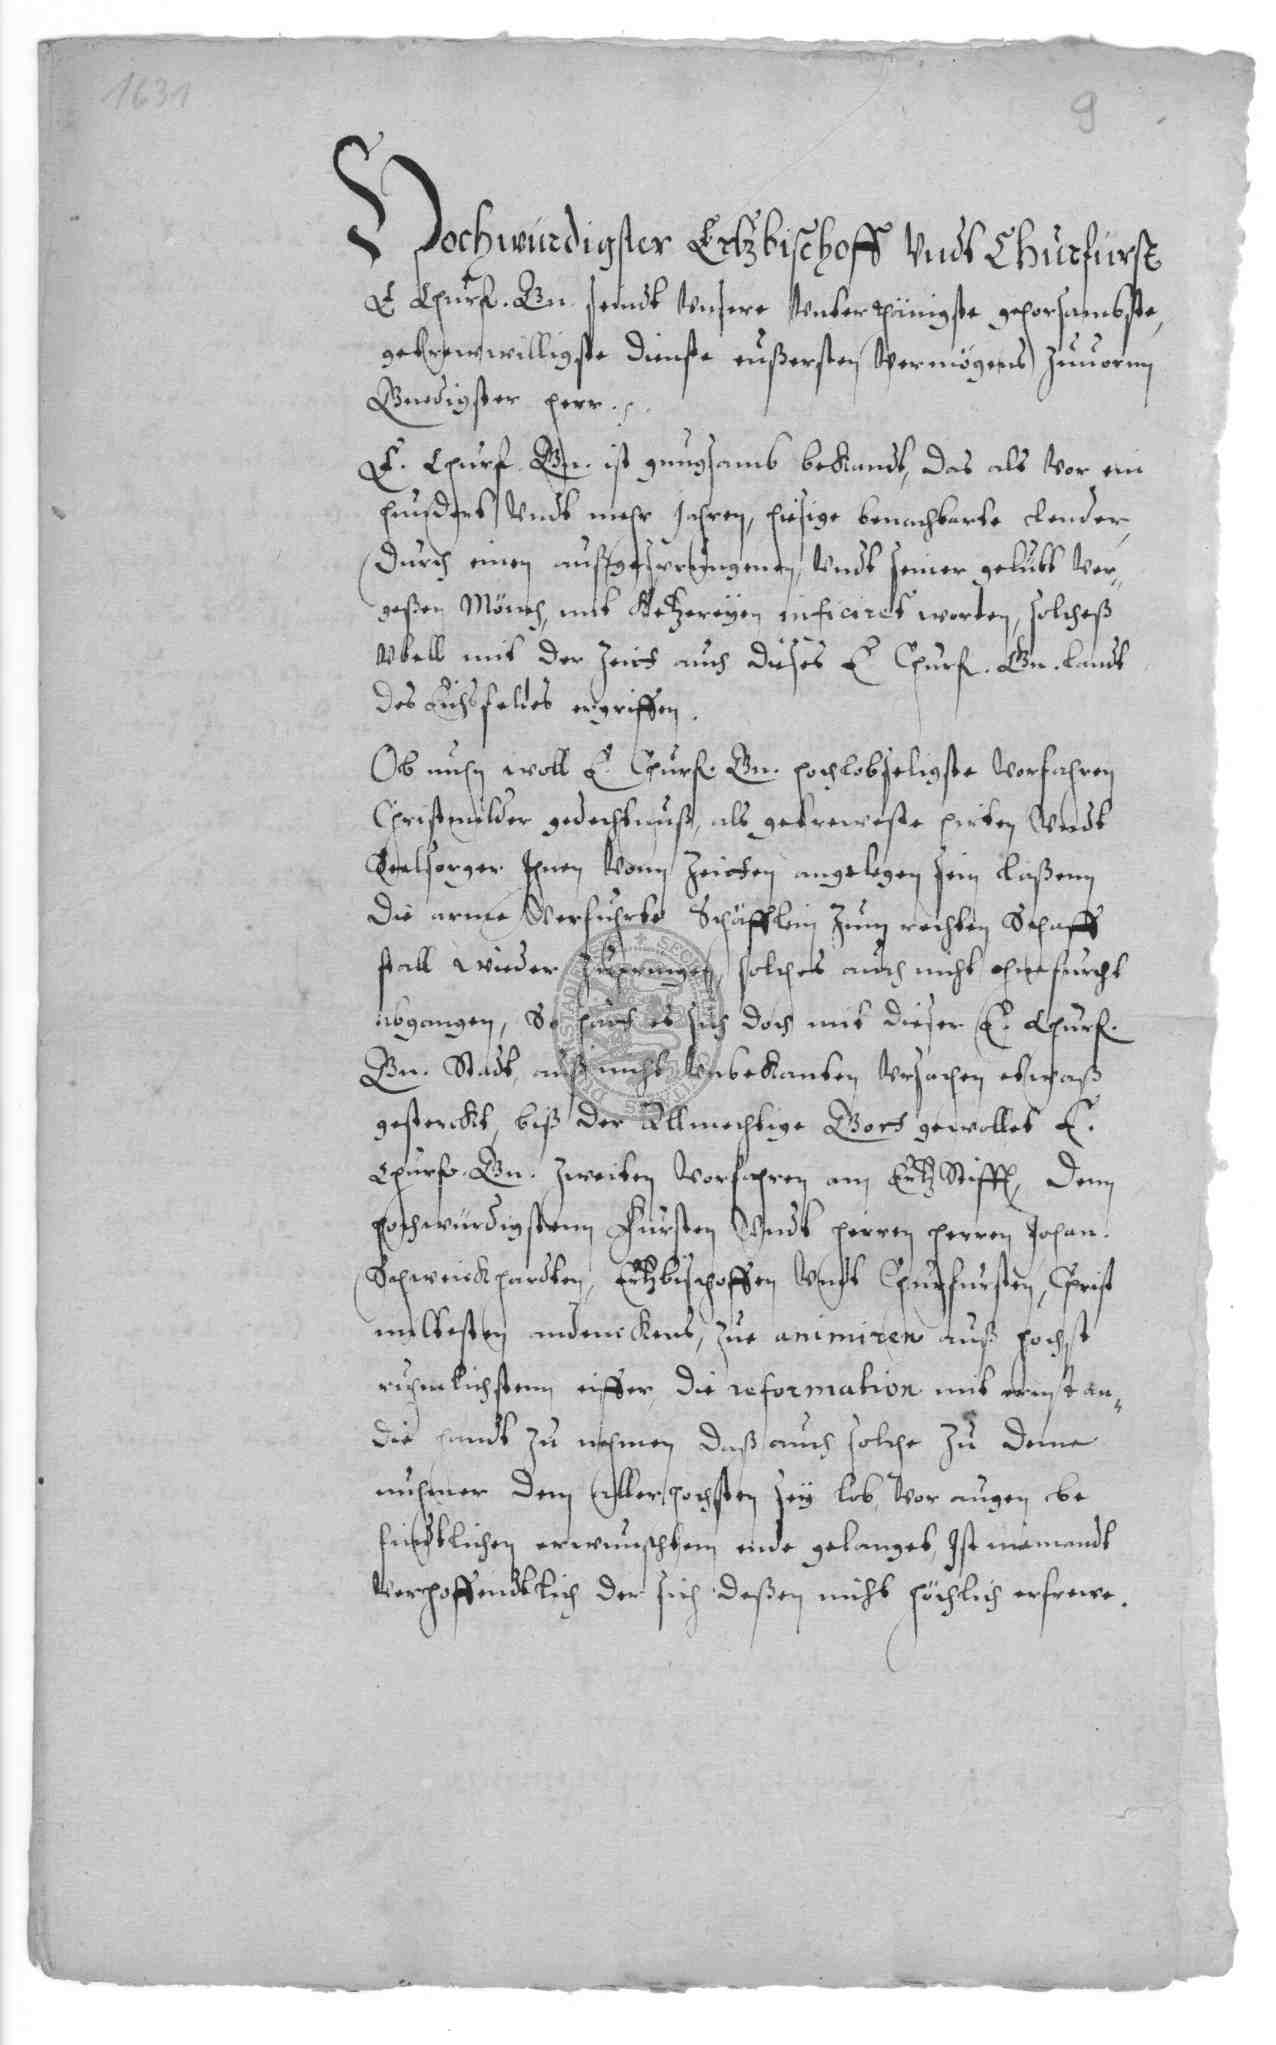 1631
9
Hochwürdigster Ertzbischoff Vndt Churfürst
E Churf. Gn. seindt Vnsere Vnterthänigste gehorsambste,
getrewwilligste dienste eußersten Vermögens zuuornn
Gnedigster Herr.
E. Churf. Gn. ist gnugsamb bekandt, das als Vor ein
hundert Vndt mehr Jahren, hiesige benachbarte Lender,
durch einen außgesprungenen, Vndt seiner gelübt Ver-
geßen Mönch, mit Ketzereyen inficiret worden, solcheß
Vbell mit der Zeitt auch dieses E Churf. Gn. landt
des Eichsfeldes ergriffen.
Ob nuhn woll E. Churf. Gn. hochlobseligste Vorfahren
Christmilder gedechtnuß, als getreweste hirten Vndt
Seelsorger Ihnen Vonn Zeitten angelegen sein laßenn
die arme Verfuhrte Schäfflein zum rechten Schaff
stall wieder zupringen, solches auch nicht ohne furcht
abgangen, So hatt es sich doch mit dieser E. Churf.
Gn. Stadt, auß nicht Vnbekanten Vrsachen etwaß
gesterckt, biß der Allmechtige Gott gewollet E.
Churf. Gn. zweiten Vorfahren am Ertz Stifft, dem
hochwürdigstenn Fürsten Vndt herren herren Johan.
Schweickhardten, Ertzbischoffen Vndt Churfursten, Christ
miltesten andenckens, zue animiren auß hochst
ruhmlichstem eiffer, die reformation mit ernst an-
die handt zu nehmen daß auch solche zu deme
nuhmer dem Allerhochsten sey lob, Vor augen be
findtlichen erwunschtem ende gelanget, Ist niemandt
Verhoffendtlich der sich deßen nicht höchlich erfrewe.